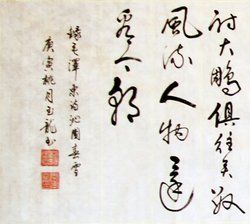 射大鵰俱往矣數
風流人物還
看今朝
錄毛澤東詞沁園春雪
庚寅桃月玉龍書